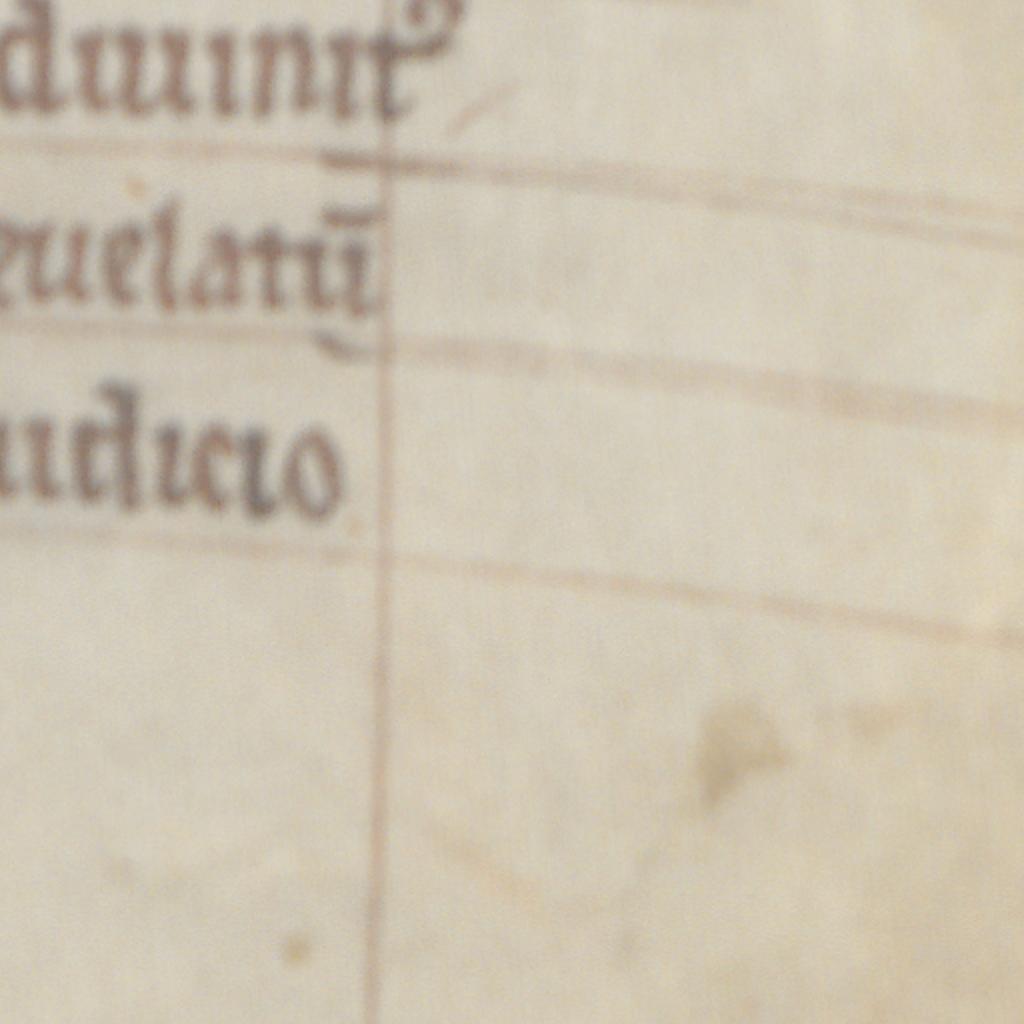 diuinit᷑
euelatū
iudicio